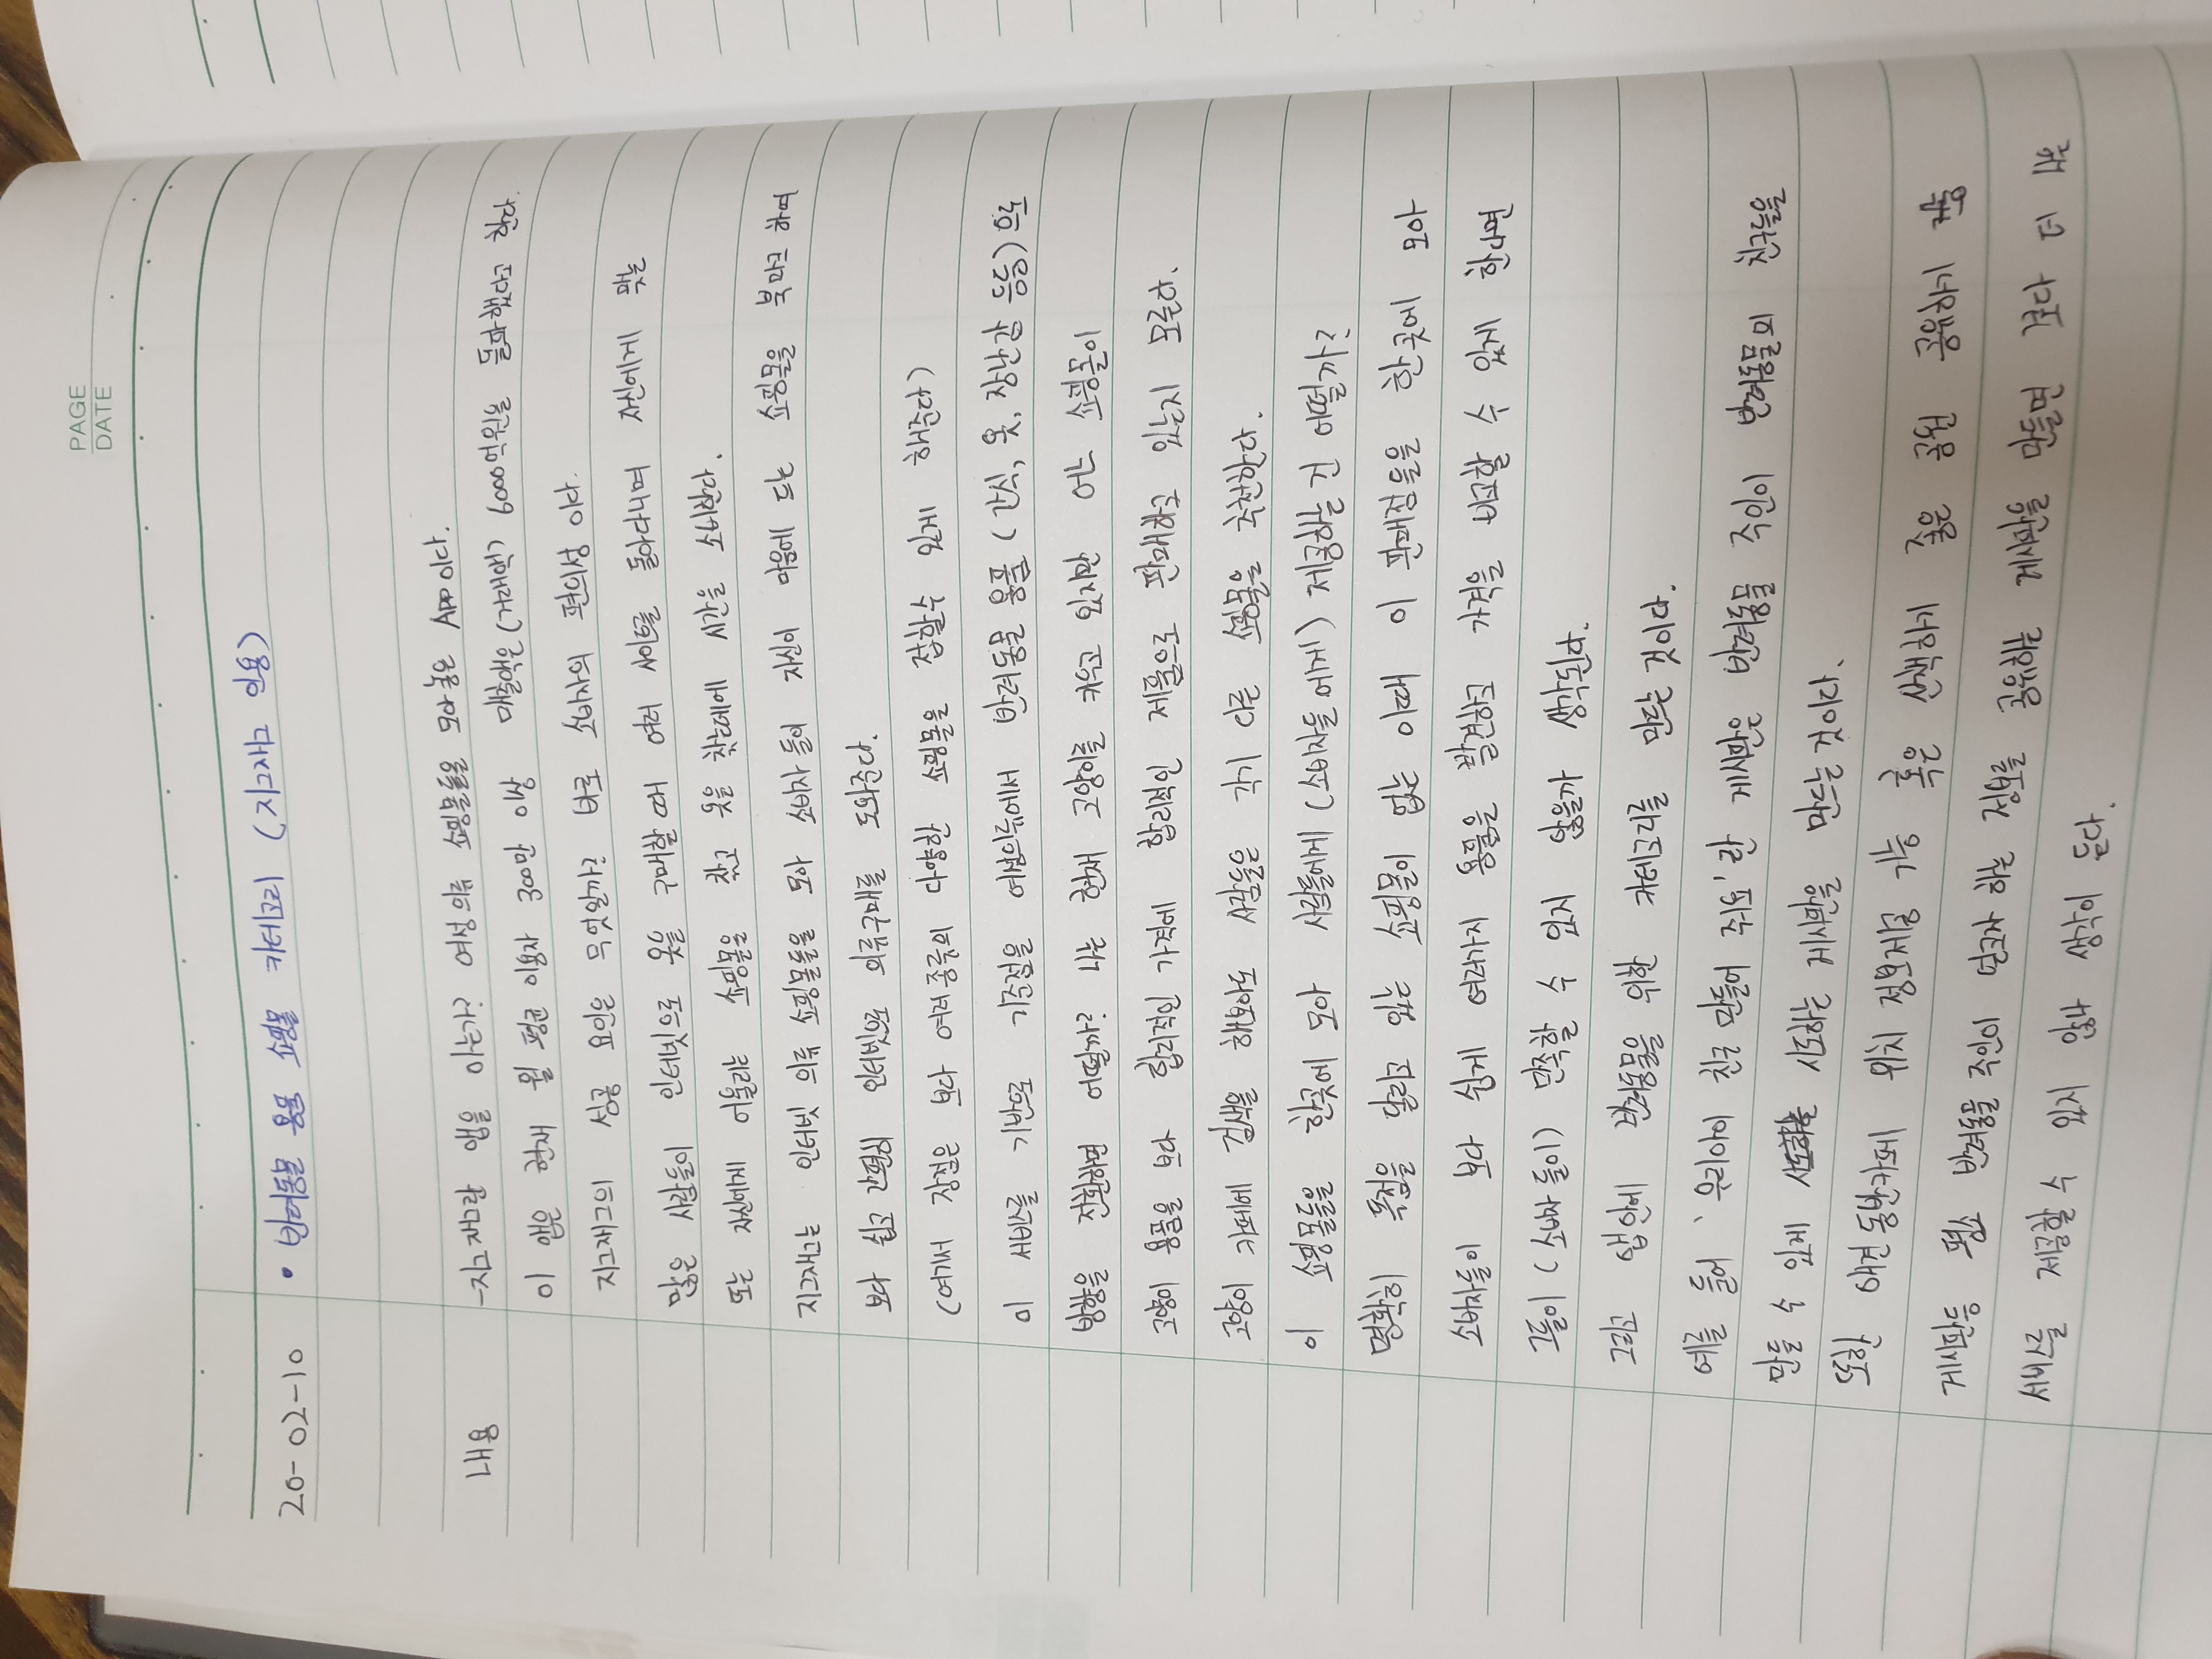 PAGE
DATE
20-02-10 • 반려동물 용품 쇼핑몰 카테고리 (지그재그 인용)
내용 -지그재그란 앱을 아는가? 여성의류 쇼핑몰들을 모아놓은 APP이다.
이 앱은 현재 월 평균 이용자 300만 이상 매출액은(거래액) 6000억원을 돌파했다고 한다.
지그재그의 성공 요인은 무엇일까? 바로 소비자의 편의성 이다.
많은 사람들이 인터넷으로 옷을 구매할 때 여러 사이트를 돌아다니며 자신에게 맞는
또는 자신에게 어울리는 쇼핑몰을 찾고 옷을 찾는데에 시간을 소비한다.
지그재그는 인터넷 의류 쇼핑몰들을 모아 소비자들이 자신이 마음에 드는 쇼핑몰을 북마크 하여
보다 쉽고 간편히 인터넷으로 의류구매를 도와준다.
(여기서 장점은 보다 여러종류의 다양한 쇼핑몰을 접할수 있게 해준다)
이 서비스를 기반으로 기준점을 여성의류에서 반려동물 용품 (간식, 옷, 장난감 등등)으로
방향을 전환하면 어떨까? 나는 현재 고양이를 키우고 있지만 어느 쇼핑몰이
고양이 용품을 보다 합리적인 가격에 합리적인 제품으로 판매하고 있는지 모른다.
고양이 카페에 검색을 해보아도 사람들은 각기 다른 쇼핑몰을 추천한다.
이 쇼핑몰들을 한곳에 모아 사람들에게 (소비자들에게) 제공하는 건 어떨까?
명확히 독점을 달리고 있는 쇼핑몰이 없는 이때 이 판매점들을 한곳에 모아
소비자들이 보다 쉽게 여러가지 용품을 발견하고 가격을 비교할 수 있게 한다면
그들이 (소비자들이) 만족할 수 있지 않을까 생각된다.
그리고 앱안에 반려동물을 위한 카테고리를 만드는 것이다.
예를 들어 '우리아이 친구 만들어 줘요'란 게시판은 반려동물 주인이 반려동물의 친구들을
만들 수 있게 시도하는 게시판을 만드는 것이다.
또한 애견 동반카페 위치 정보제공 기능 혹은 산책하기 좋은 공원 공유하기
게시판등 평소 반려동물 주인이 얻고자 하는 정보를 공유하는 게시판을 만들면 보다 더 나은
서비스를 제공할 수 있지 않나 생각이 든다.